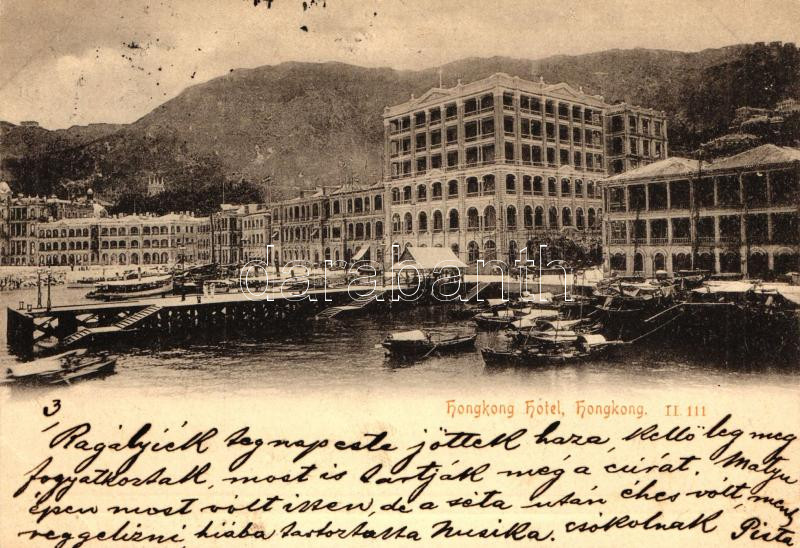 darabanth
Hongkong Hôtel, Hongkong. II. 111
3
Ragályiék tegnap este jöttek haza, kellőleg meg
fogyatkoztak, most is tartják még a cúrát. Matyu
épen most vólt itten, de a séta után éhes vólt, ment
reggelizni, hiába tartoztatta Nusika. csókolnak Pista